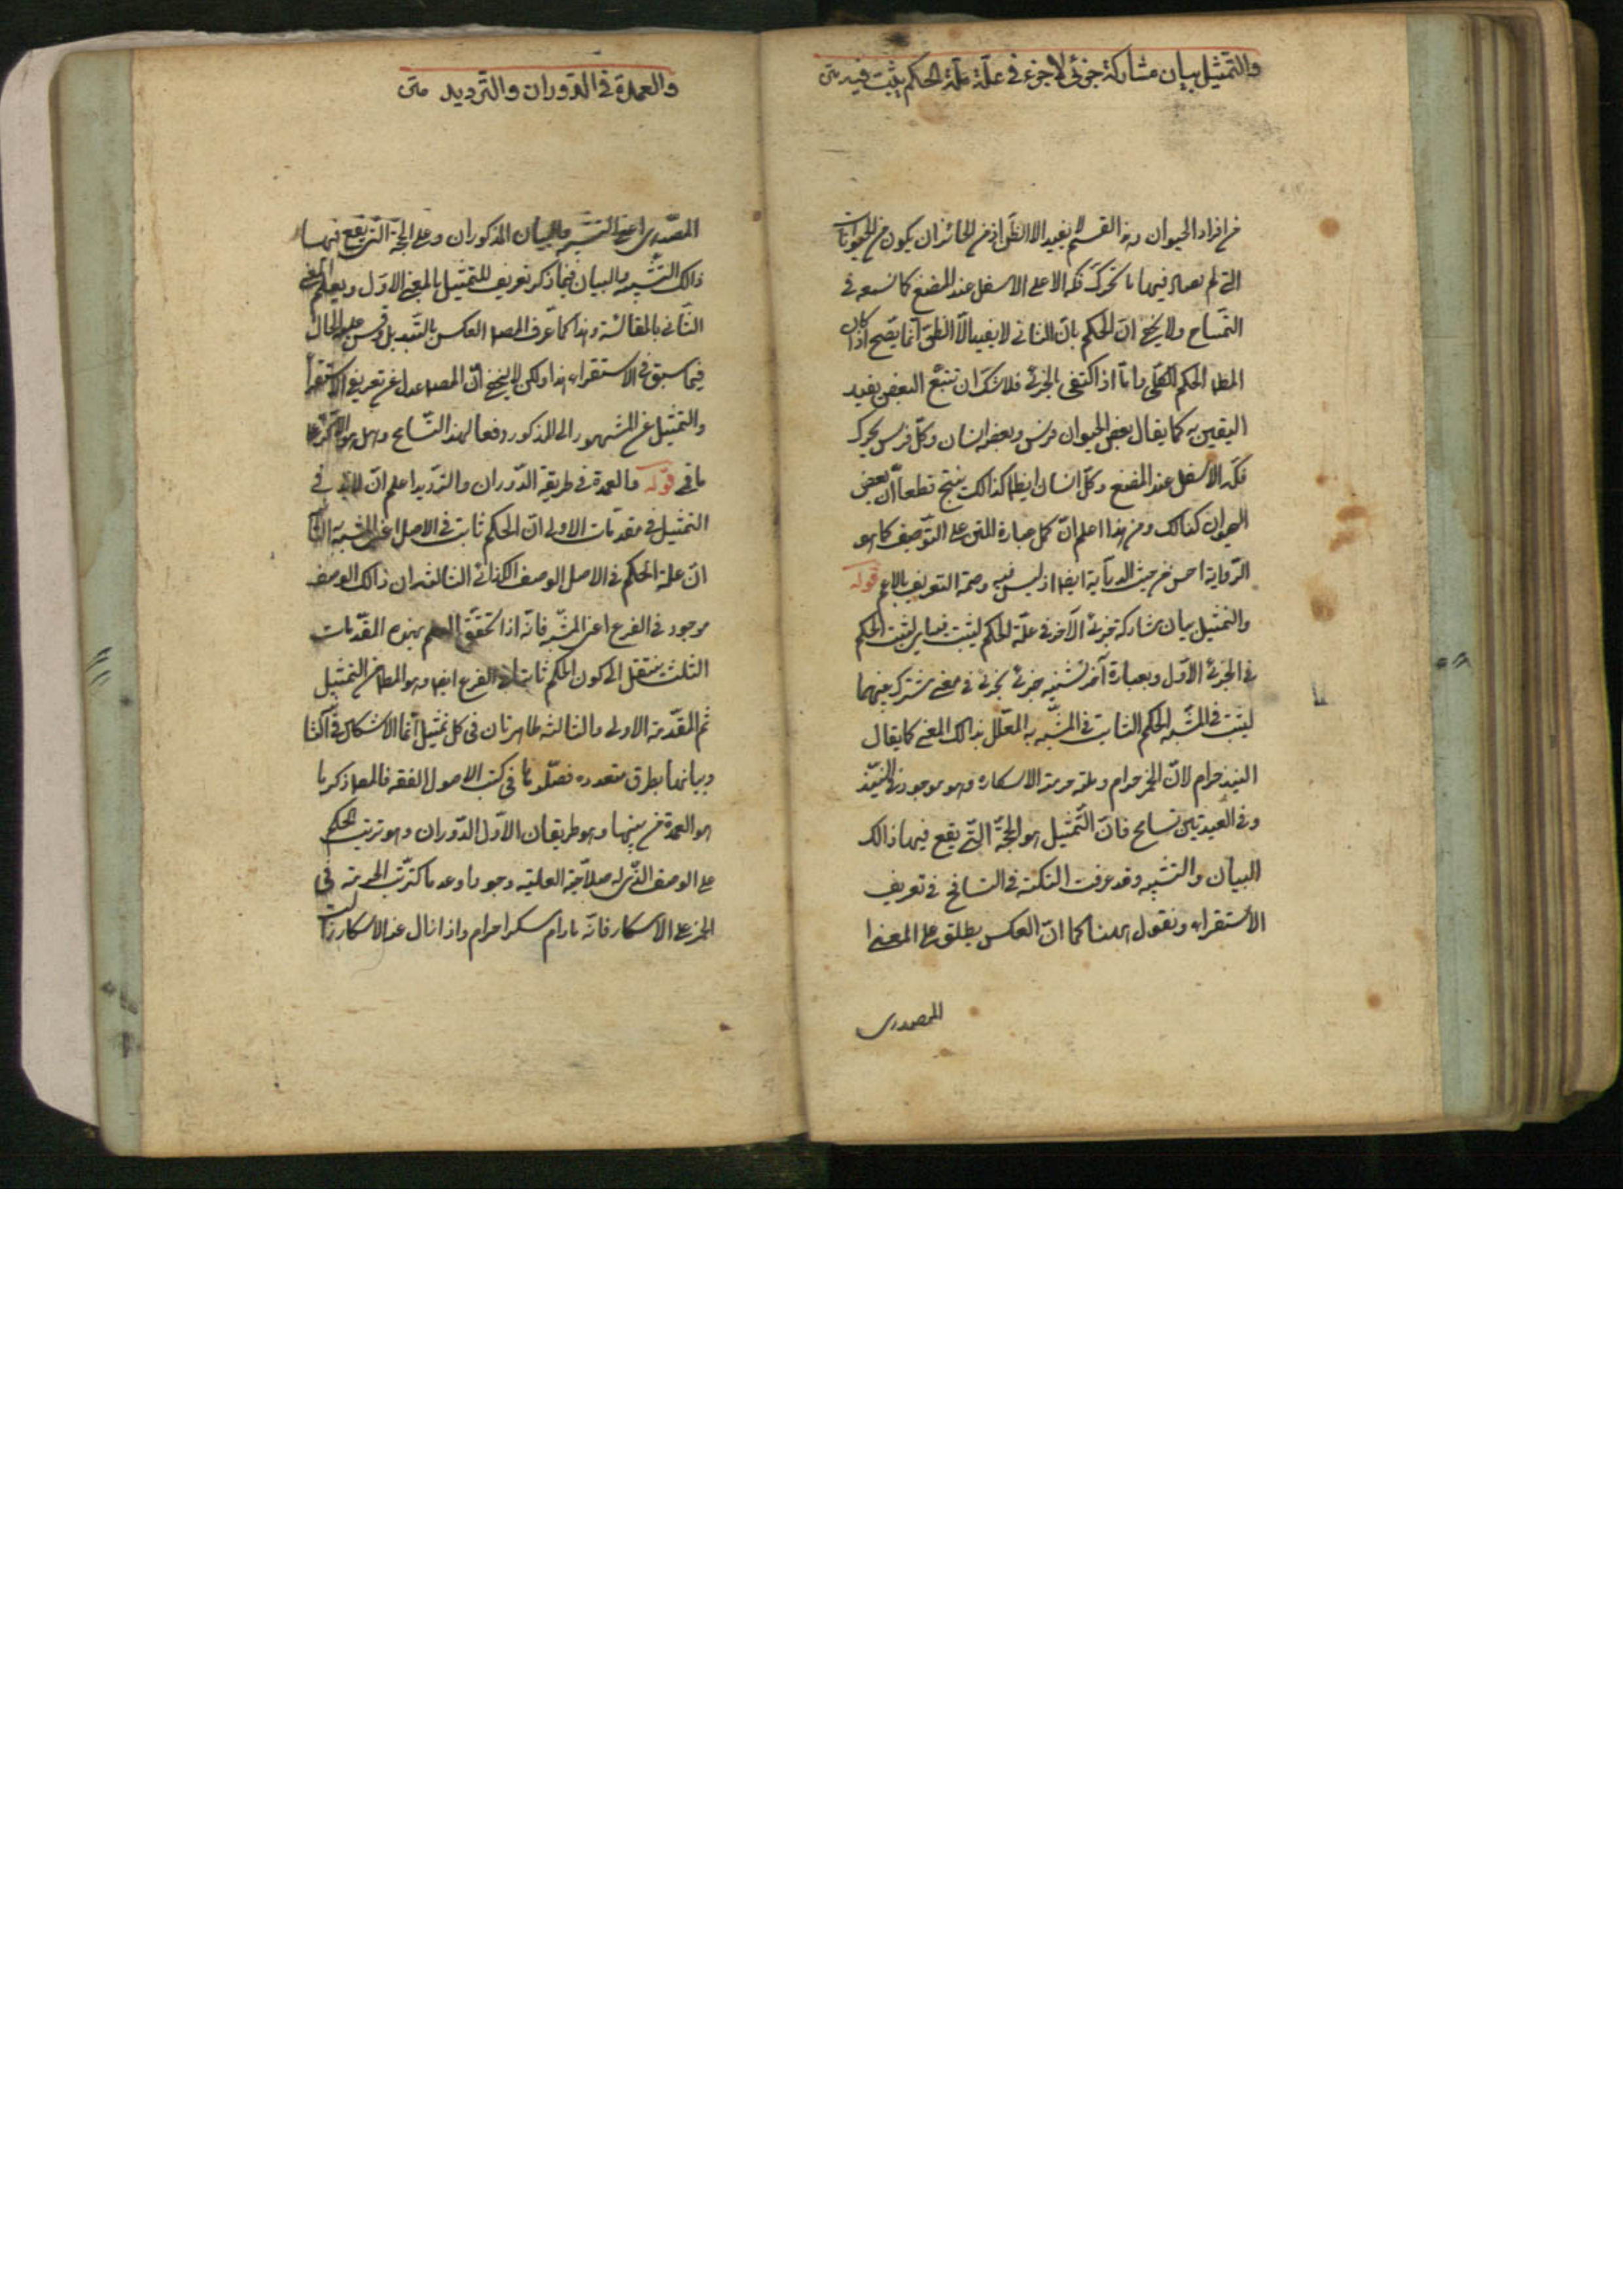 والتمثيل بيان مشاركة جزئى لاجزء فى علّة علّة الحكم يثبت فيه متن
من افراد الحيوان وهذا القسم لا يفيد الا الظن اذ من الجائز ان يكون من الحيوانات
التى لم نصادفها ما تحرك فكه الاعلى الاسفل عند المضغ كما نسمعه فى
التمساح ولا يخفى انّ الحكم بانّ الثانى لا يفيد الّا الظنّ انّما يصّح اذا كان
المط الحكم الكلّى وامّا اذا اكتفى بالجزئى فلا شكّ ان تتبّع البعض يفيد
اليقين به كما يقال بعض الحيوان فرس وبعضه انسان وكلّ فرس يحرك
فكّه الاسفل عند المضغ وكلّ انسان ايضا كذالك ينتج قطعا انّ بعض
الحيوان كذالك ومن هذا اعلم انّ حمل عبارة المتن على التّوصيف كما هو
الرّواية احسن من حيث الدّراية ايضا اذ ليس فيه وصمة التعريف بالاعم قوله
والتمثيل بيان مشاركة جزئى لآخر فى علّة الحكم ليثبت فيه اى ليثبت الحكم
فى الجزئى الاوّل وبعبارة آخر تشبيه جزئى بجزئى فى معنى مشترك بينهما
ليثبت فى المشبّه الحكم الثابت فى المشبّه به المعلّل بذالك المعنى كما يقال
النبيذ حرام لانّ الخمر حرام وعلّة حرمته الاسكار وهو موجود فى النبيّذ
وفى العبارتين تسامح فانّ التّمثيل هو الحجّة التّى يقع فيها ذالك
البيان والتشبيه وقد عرفت النكتة فى التسامح فى تعريف
الاستقراء ونقول ههنا كما انّ العكس يطلق على المعنى
المصدرى
والعمدة فى الدّوران والتّرديد متن
المصّدرى اعنى التشبيه والبيان المذكوران وعلى الحجّة التّى يقع فيها
ذالك التشبيه والبيان فما ذكر تعريف للتمثيل بالمعنى الاوّل ويعلم المعنى
الثّانى بالمقايسة وهذا كما عرّف المصـ العكس بالتّبديل وقس عليه الحال
فيما سبق فى الاستقراء هذا ولكن لا يخفى انّ المصـ عدل عن تعريف الاستقراء
والتمثيل عن المشهور الى المذكور دفعا لهذا التّسامح وهل هو الّا كرّ على
ما فرّ قوله والعمدة فى طريقه الدّوران والترّديد اعلم انّه لابّد فى
التمثيل فى مقدّمات الاولى انّ الحكم ثابت فى الاصل اعنى المشبه به الثّانية
انّ علة الحكم فى الاصل الوصف الكذائى الثالثة ان ذالك الوصف
موجود فى الفرع اعنى المشبّه فانّه اذا تحقّق العلم بهذه المقدّمات
الثلث ينتقل الى كون الحكم ثابتا فى الفرع ايضا وهو المط من التمثيل
ثم المقدّمة الاولى والثالثة ظاهرتان فى كل تمثيل انّما الاشكال فى الثّانية
وبيانها بطرق متعدده فصّلوها فى كتب الاصول الفقه فالمصـ ذكر ما
هو العمدة من بينها وهو طريقان الاوّل الدّوران وهو ترتب الحكم
على الوصف الذّى له صلاحيّة العليّة وجودا وعدما كترتّب الحرمة فى
الخمر على الاسكار فانّه مادام مسكرا حرام واذا زال عنه الاسكار زالت